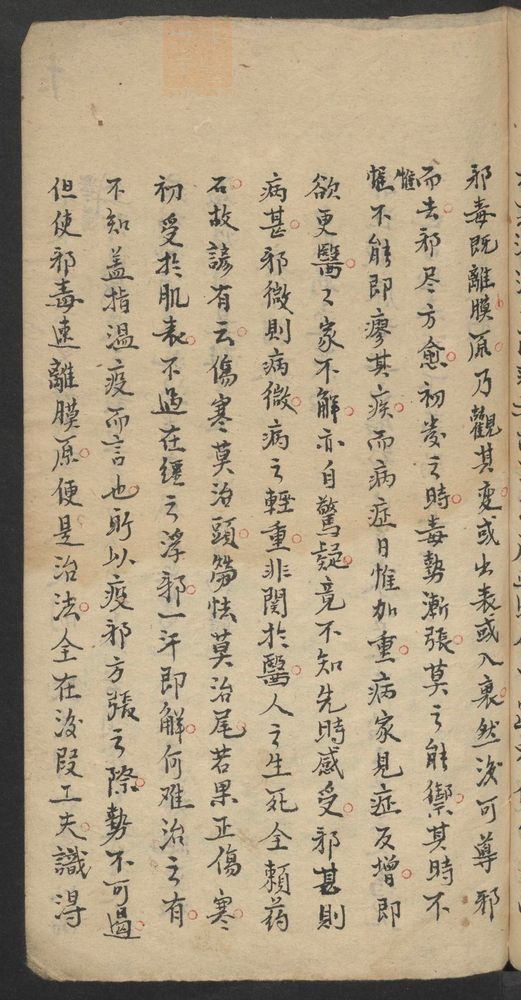 邪毒既離膜原乃觀其変或出表或入裏然後可導邪
而去邪尽方愈初發之時毒勢漸張莫之能禦其時不
惟不能即瘳其疾而病症日惟加重病家見症反增即
欲更醫〻家不解亦自驚疑竟不知先時感受邪甚則
病甚邪微則病微病之輕重非関於醫人之生死全賴药
石故諺有云傷寒莫治頭勞怯莫治尾若果正傷寒
初受於肌表不過在經之浮邪一汗即解何难治之有
不知盖指温疫而言也所以疫邪方張之際勢不可遏
但使邪毒速離膜原便是治法全在後段工夫識得